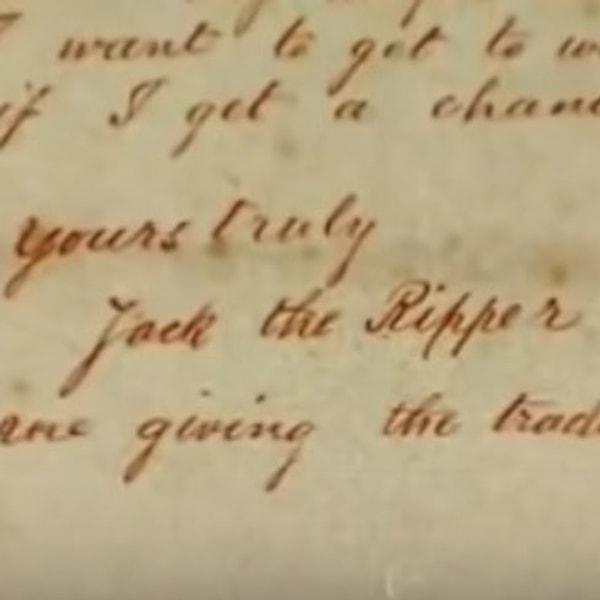 I want to get to w
if I get a chanc
yours truly
Jack the Ripper
me giving the trad